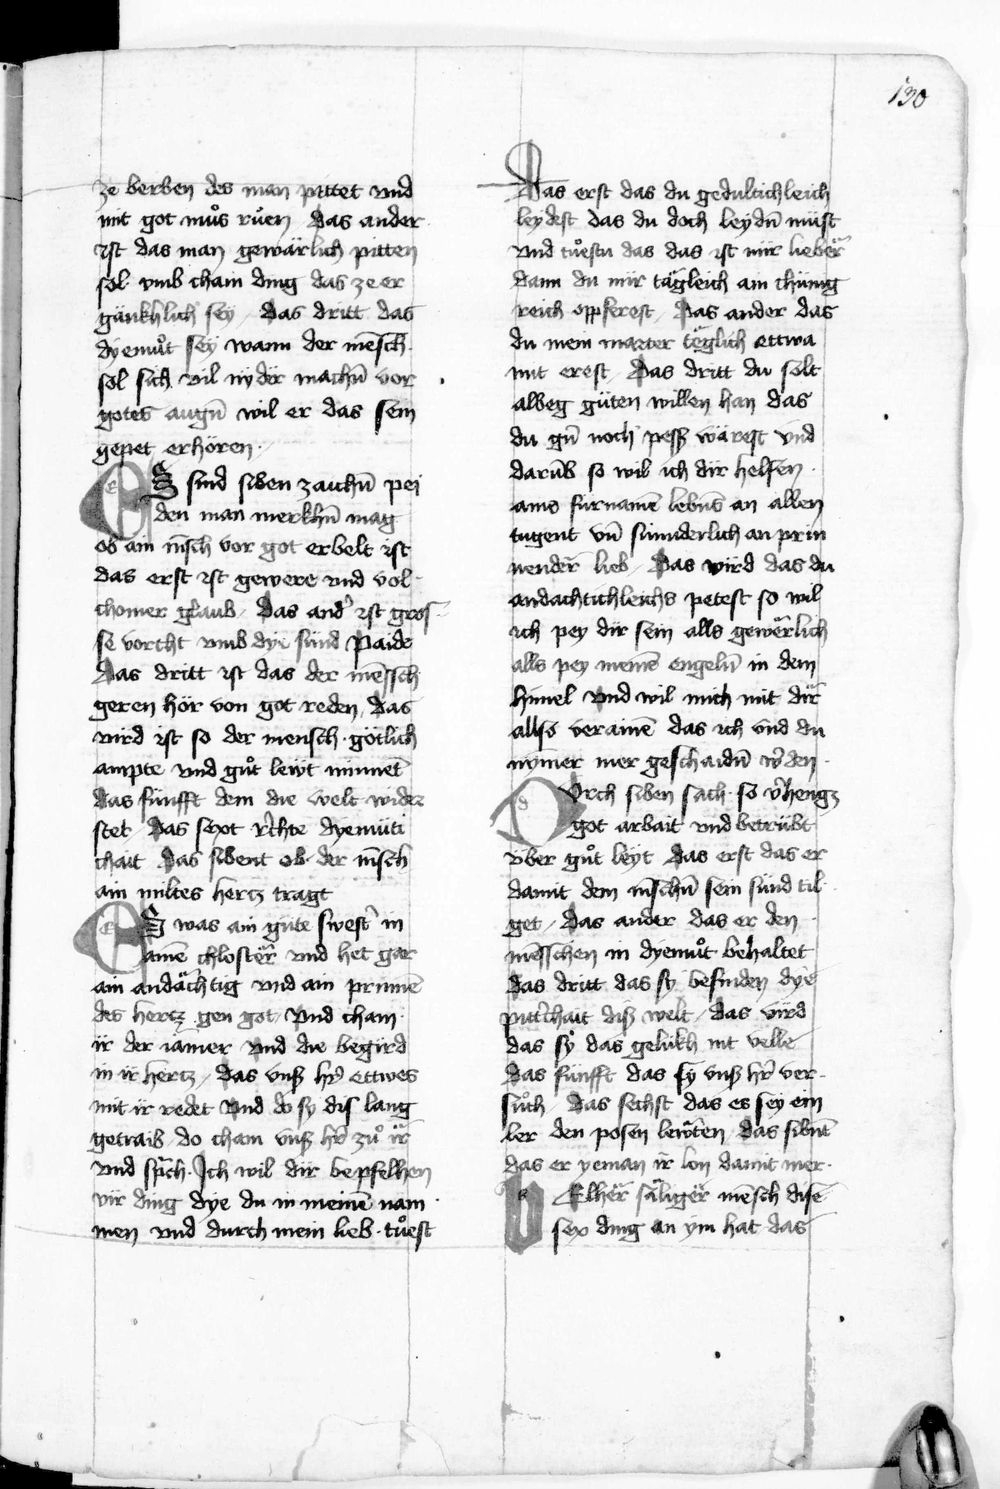 130
ze berben des man pittet vnd
mit got můs růen / Das ander
ist das man gewärlich pitten
sol vmb chain ding das ze er
gänkhlich sey / das dritt das
dyemuͦt sey wann der mēsch
sol sich vil nyder machn̄ vor
gotes augn̄ wil er das sein
gepet erhören ·
ES sind siben zaichn̄ pei
den man merkhn̄ mag
ob ain mēsch vor got erbelt ist
das erst ist gewere vnd vol
chomer glaub / Das and͛ ist gros
se vorcht vmb dye sünd Paide
Das dritt ist das der mēnsch
geren hör von got reden / das
vird ist so der mensch götlich
ampte vnd guͦt lewt minnet
das fünfft dem die welt wider
stet / Das sext r͛chte dyemüti
chait Das sibent ob der mēsch
ain miltes hertz tragt
ES was ain güte swest͛ in
ainē chloster vnd het gar
ain andächtig vnd ain prinnē
des hertz gen got / vnd cham
ir der iāmer vnd die begird
in ir hertz / das vnß h͛r ettwes
mit ir redet vnd do sy dis lang
getraib / do cham vnß h͛r zuͦ ir
vnd sprach · Ich wil dir bepfelhen
vir ding dye du in meinē nam
men vnd durch mein lieb · tuͦest
Das erst das du gedultichleich
leydest das du doch leydn̄ müst
vnd tuͦestu das das ist mir lieber
dann du mir tägleich ain chünig
reich opfferest / Das ander das
du mein marter täglich ettwa
mit erest / Das dritt du solt
albeg güten willen han das
du gn̄ noch peß wärest vnd
darūb so wil ich dir helfen ·
ains fürnamē lebn̄s an allen
tugent vn̄ sünnderlich an prin
nender lieb / Das vird das du
andachtichleichs petest so wil
ich pey dir sein alls gewerlich
alls pey meinē engeln̄ in dem
himel vnd wil mich mit dir
allso verainē das ich vnd du
nymer mer geschaidn̄ w͛den ·
DVrch siben sach · so v͛hengt
got arbait vnd betrübt
über guͦt leyt Das erst das er
damit dem mēschn̄ sein sünd til
get / Das ander das er den
mēsschen in dyemuͦt behaltet
das dritt das sy befinden dye
pitt͛chait diß welt / das vird
das sy das gelükh nit velle
das fünfft das sy vnß h͛r ver
suͦch / das sechst das es sey ein
ler den posen lewten / das sibnt
das er yeman ir lon damit mer ·
WElher säliger mēsch dise
sex ding an ym hat das